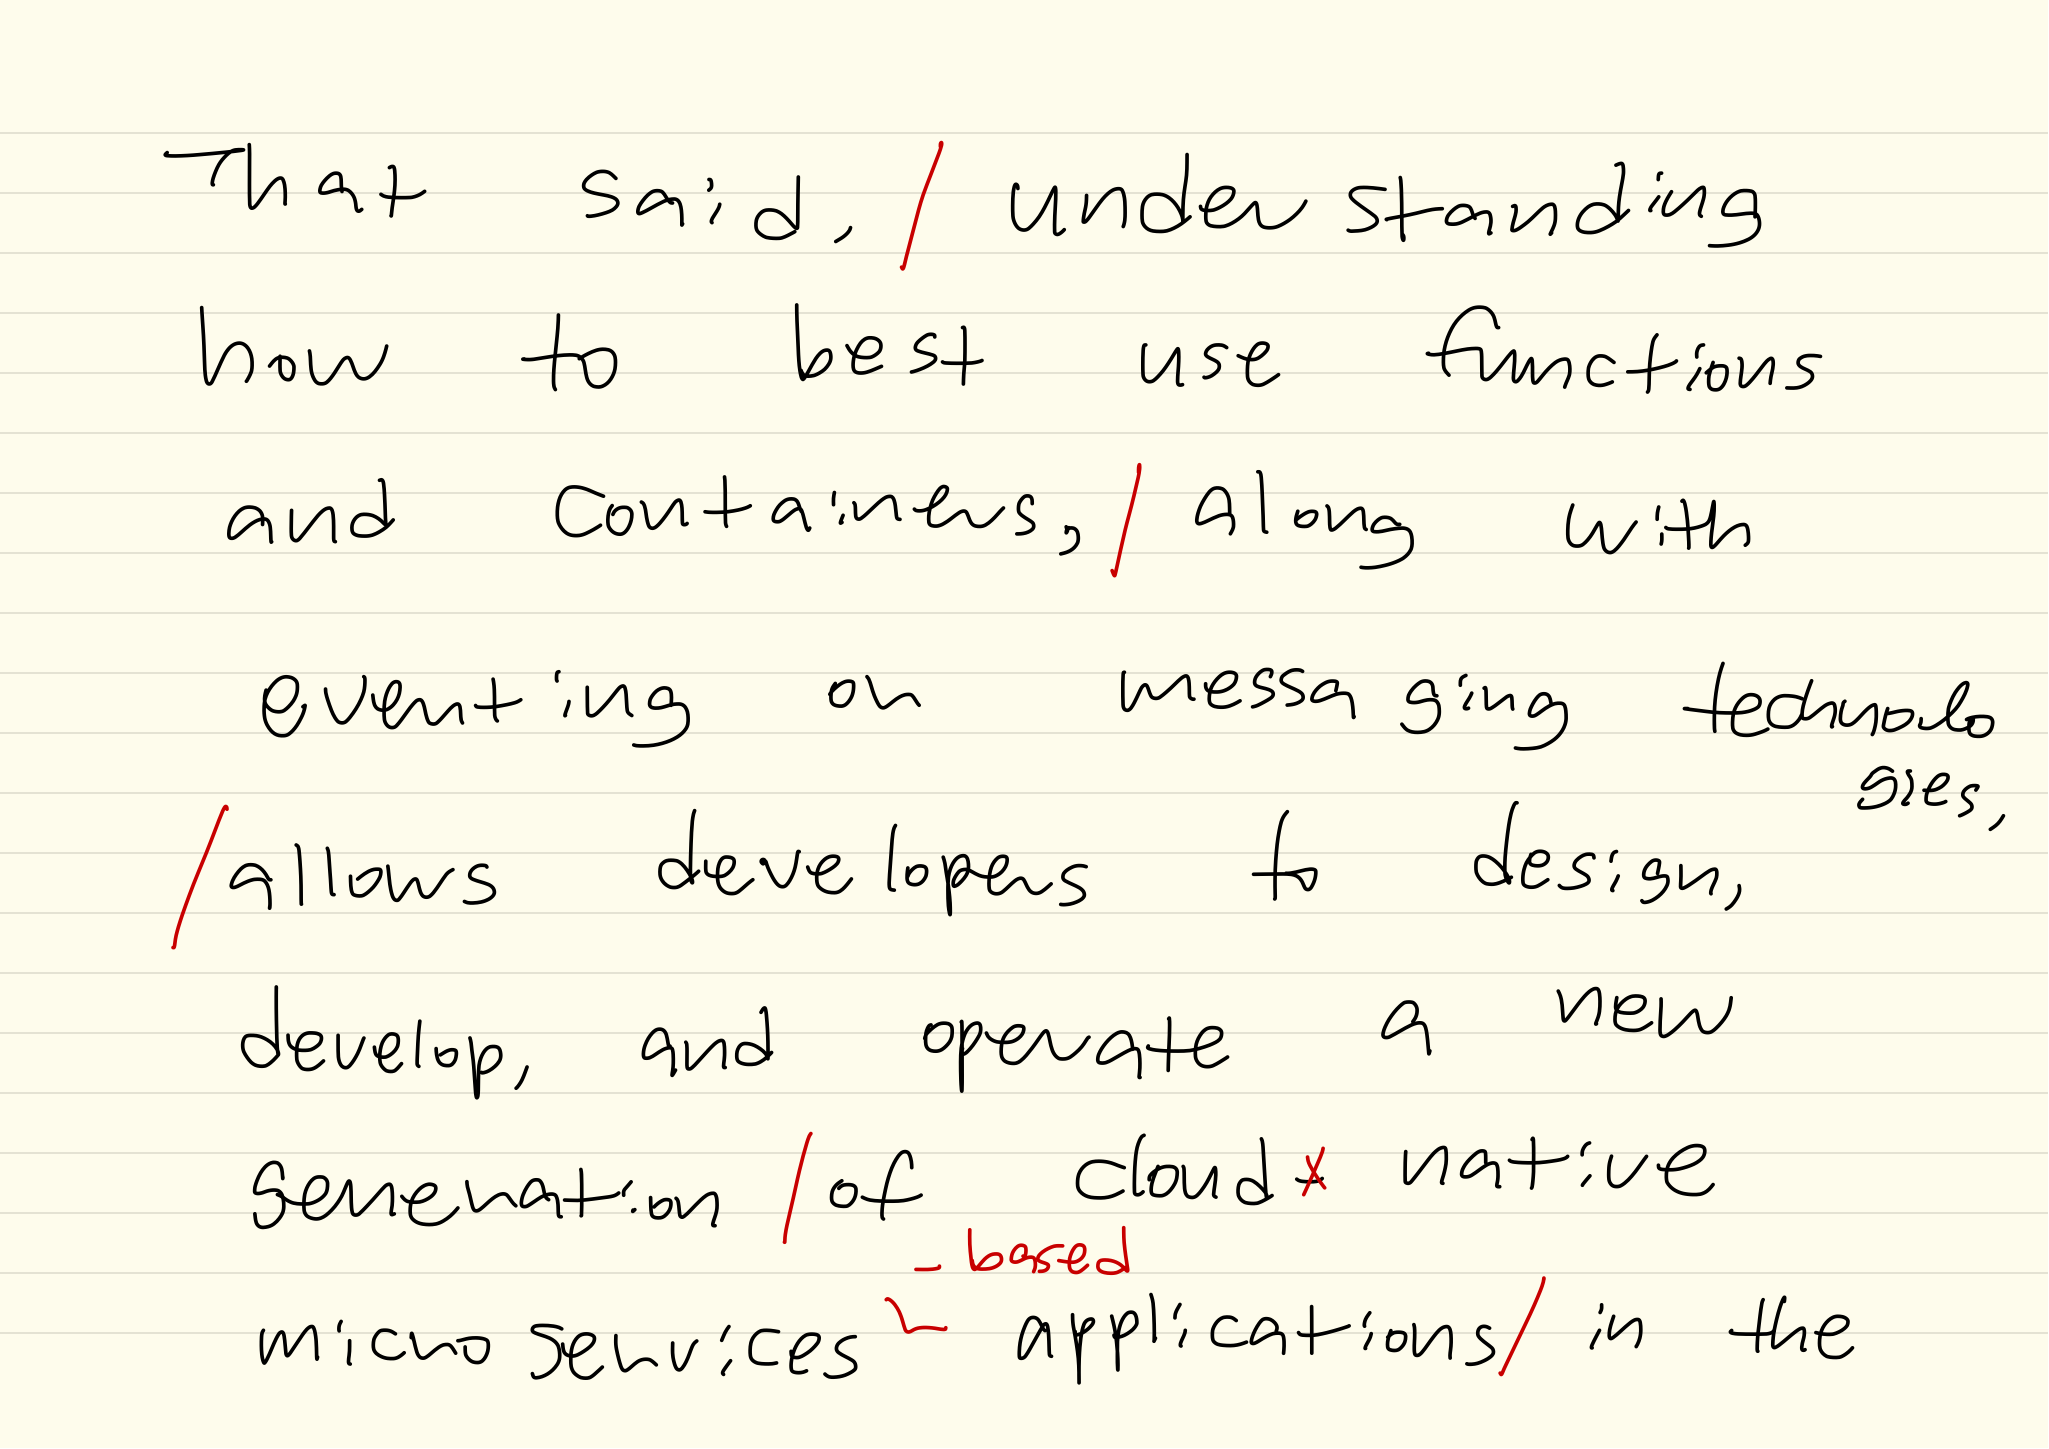 That said, / understanding
how to best use functions
and containers, / along with
eventing or messaging technolo
gies,
/ allows developers to design,
develop, and operate a new
generation / of cloud- native
-based
microservices applications / in the